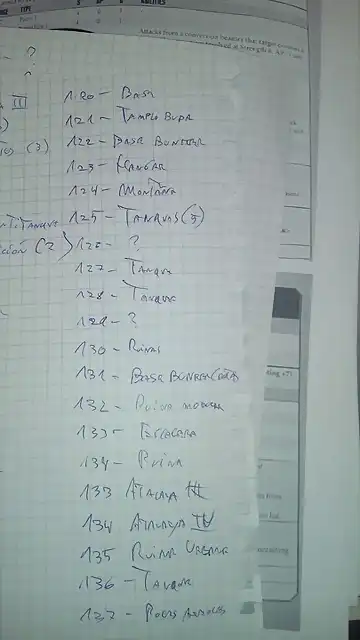 ABILITIES
TYPE
Attacks from a conversion beamer that target
?
III
(3)
ción (2)
120 - Base
121 - Templo Buda
122 - Base Bunker
123 - Hangar
124 - Montaña
125 - Tanques (3)
126 - ?
127 - Tanque
128 - Tanque
129 - ?
130 - Ruinas
131 - Base Bunker
132 - Ruina modular
133 - Escalera
134 - Ruina
133 Atalaya III
134 Atalaya IV
135 Ruina Urbana
136 - Tanque
137 - Rocas Arboles